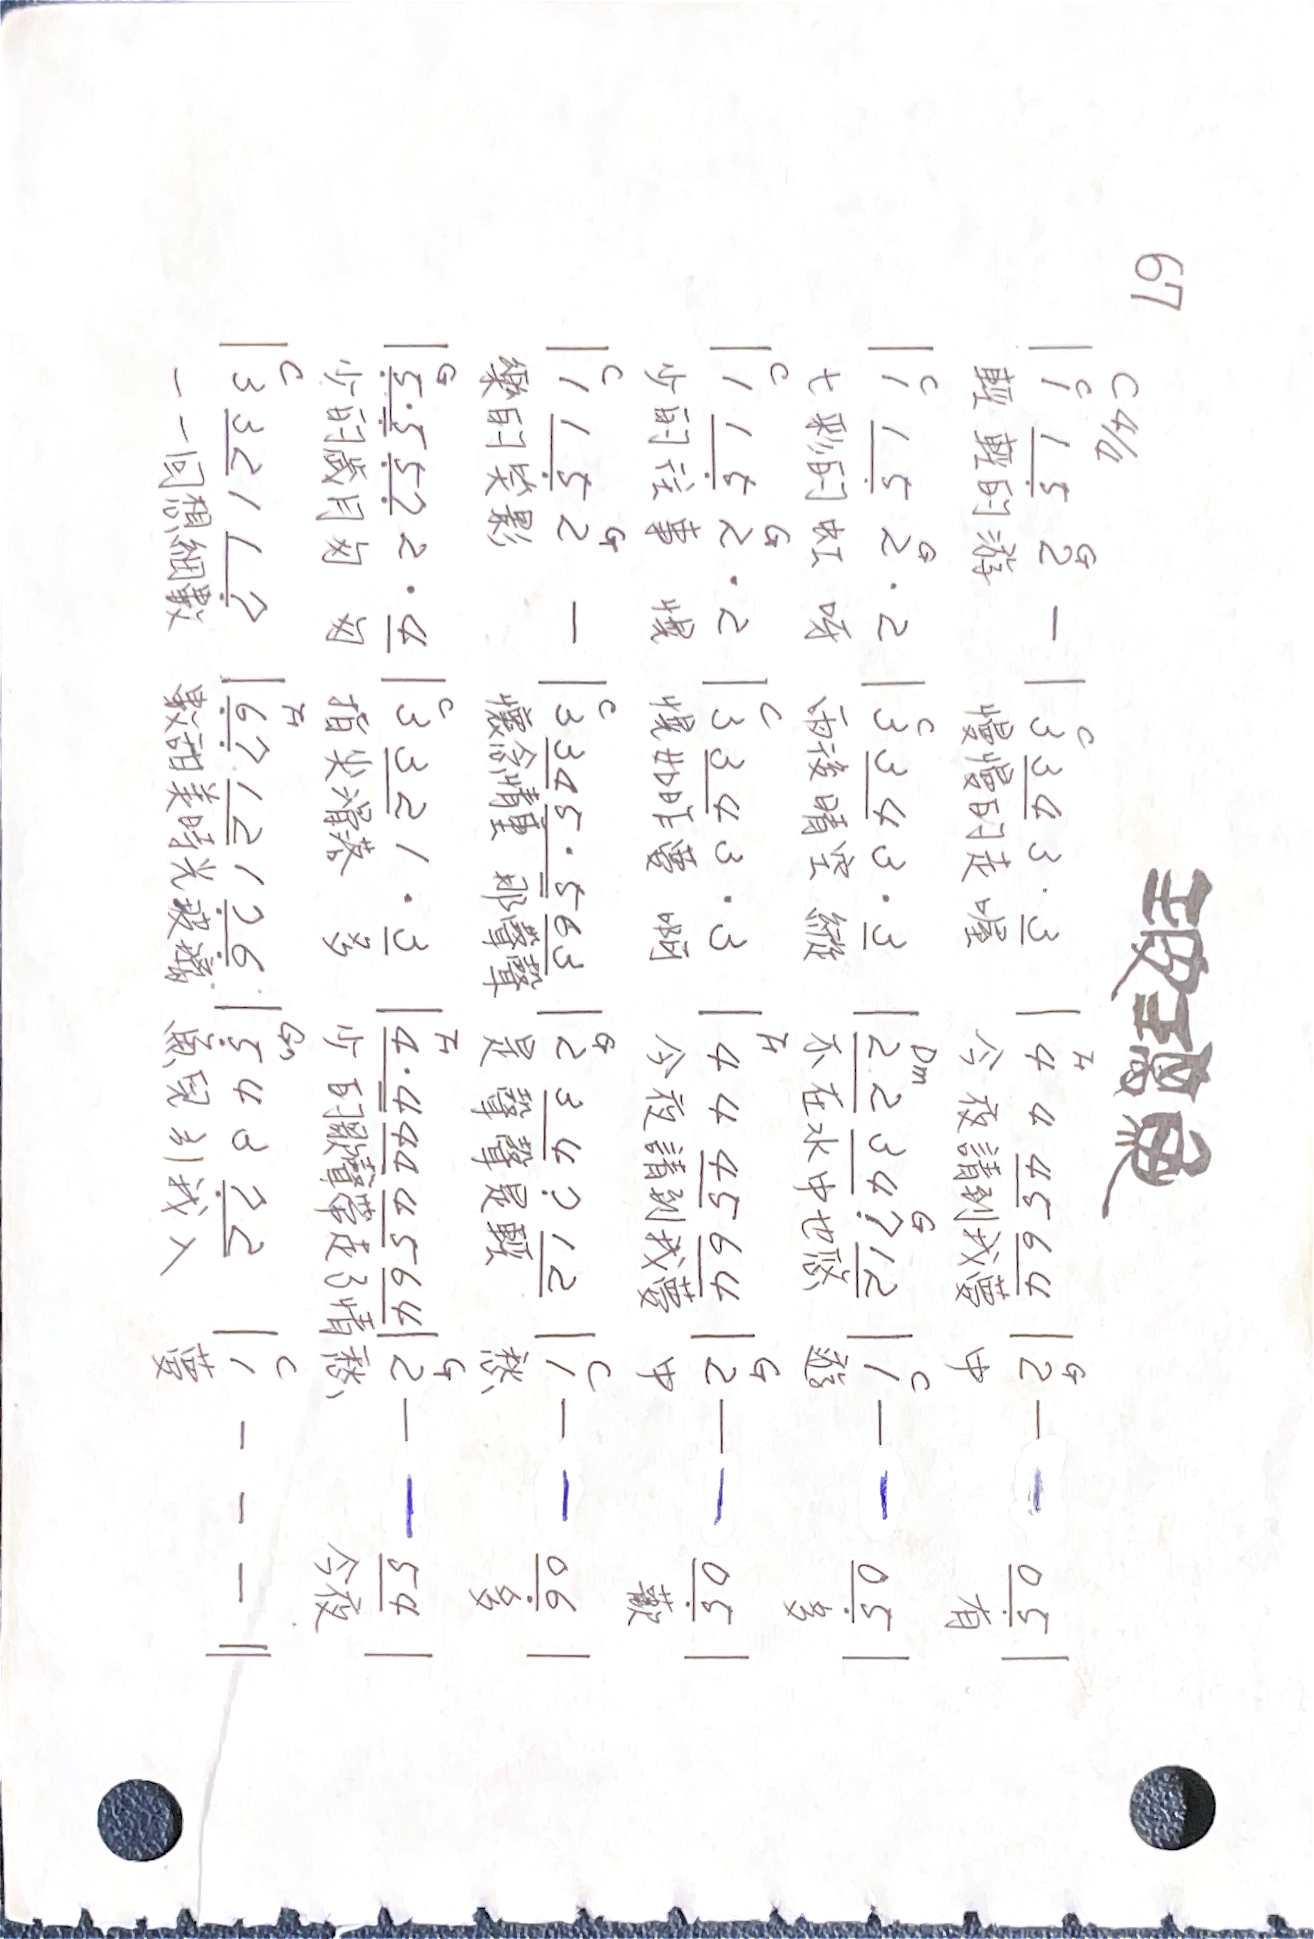 玻璃魚
67
C 4/4
C G C F G
| 1 1 5 2 — | 3 3 4 3 · 3 | 4 4 4 5 6 4 | 2 — — 0 5 |
輕輕的游 慢慢的走喔 今夜請到我夢 中 有
C G C Dm G C
| 1 1 5 2 · 2 | 3 3 4 3 · 3 | 2 2 3 4 7 1 2 | 1 — — 0 5 |
七彩的虹 呀 雨後晴空 縱 不在水中也悠 遊 多
C G C F G
| 1 1 5 2 · 2 | 3 3 4 3 · 3 | 4 4 4 5 6 4 | 2 — — 0 5 |
少的往事 恍 恍如昨夢 啊 今夜請到我夢 中 歡
C G C G C
| 1 1 5 2 — | 3 3 4 5 · 5 6 3 | 2 3 4 7 1 2 | 1 — — 0 6 |
樂的笑影 懷念情重 那聲聲 是聲聲是輕 愁 多
G C F G
| 5 · 5 5 7 2 · 4 | 3 3 2 1 · 3 | 4 · 4 4 4 4 5 6 4 | 2 — — 5 4 |
少的歲月匆 匆 指尖滑落 多 少的歌聲帶走了情 愁 今夜
C F G7 C
| 3 3 2 1 1 7 | 6 7 1 2 1 7 6 | 5 4 3 7 2 | 1 — — — ||
一一回想細數 數甜美時光玻璃 魚兒引我入 夢